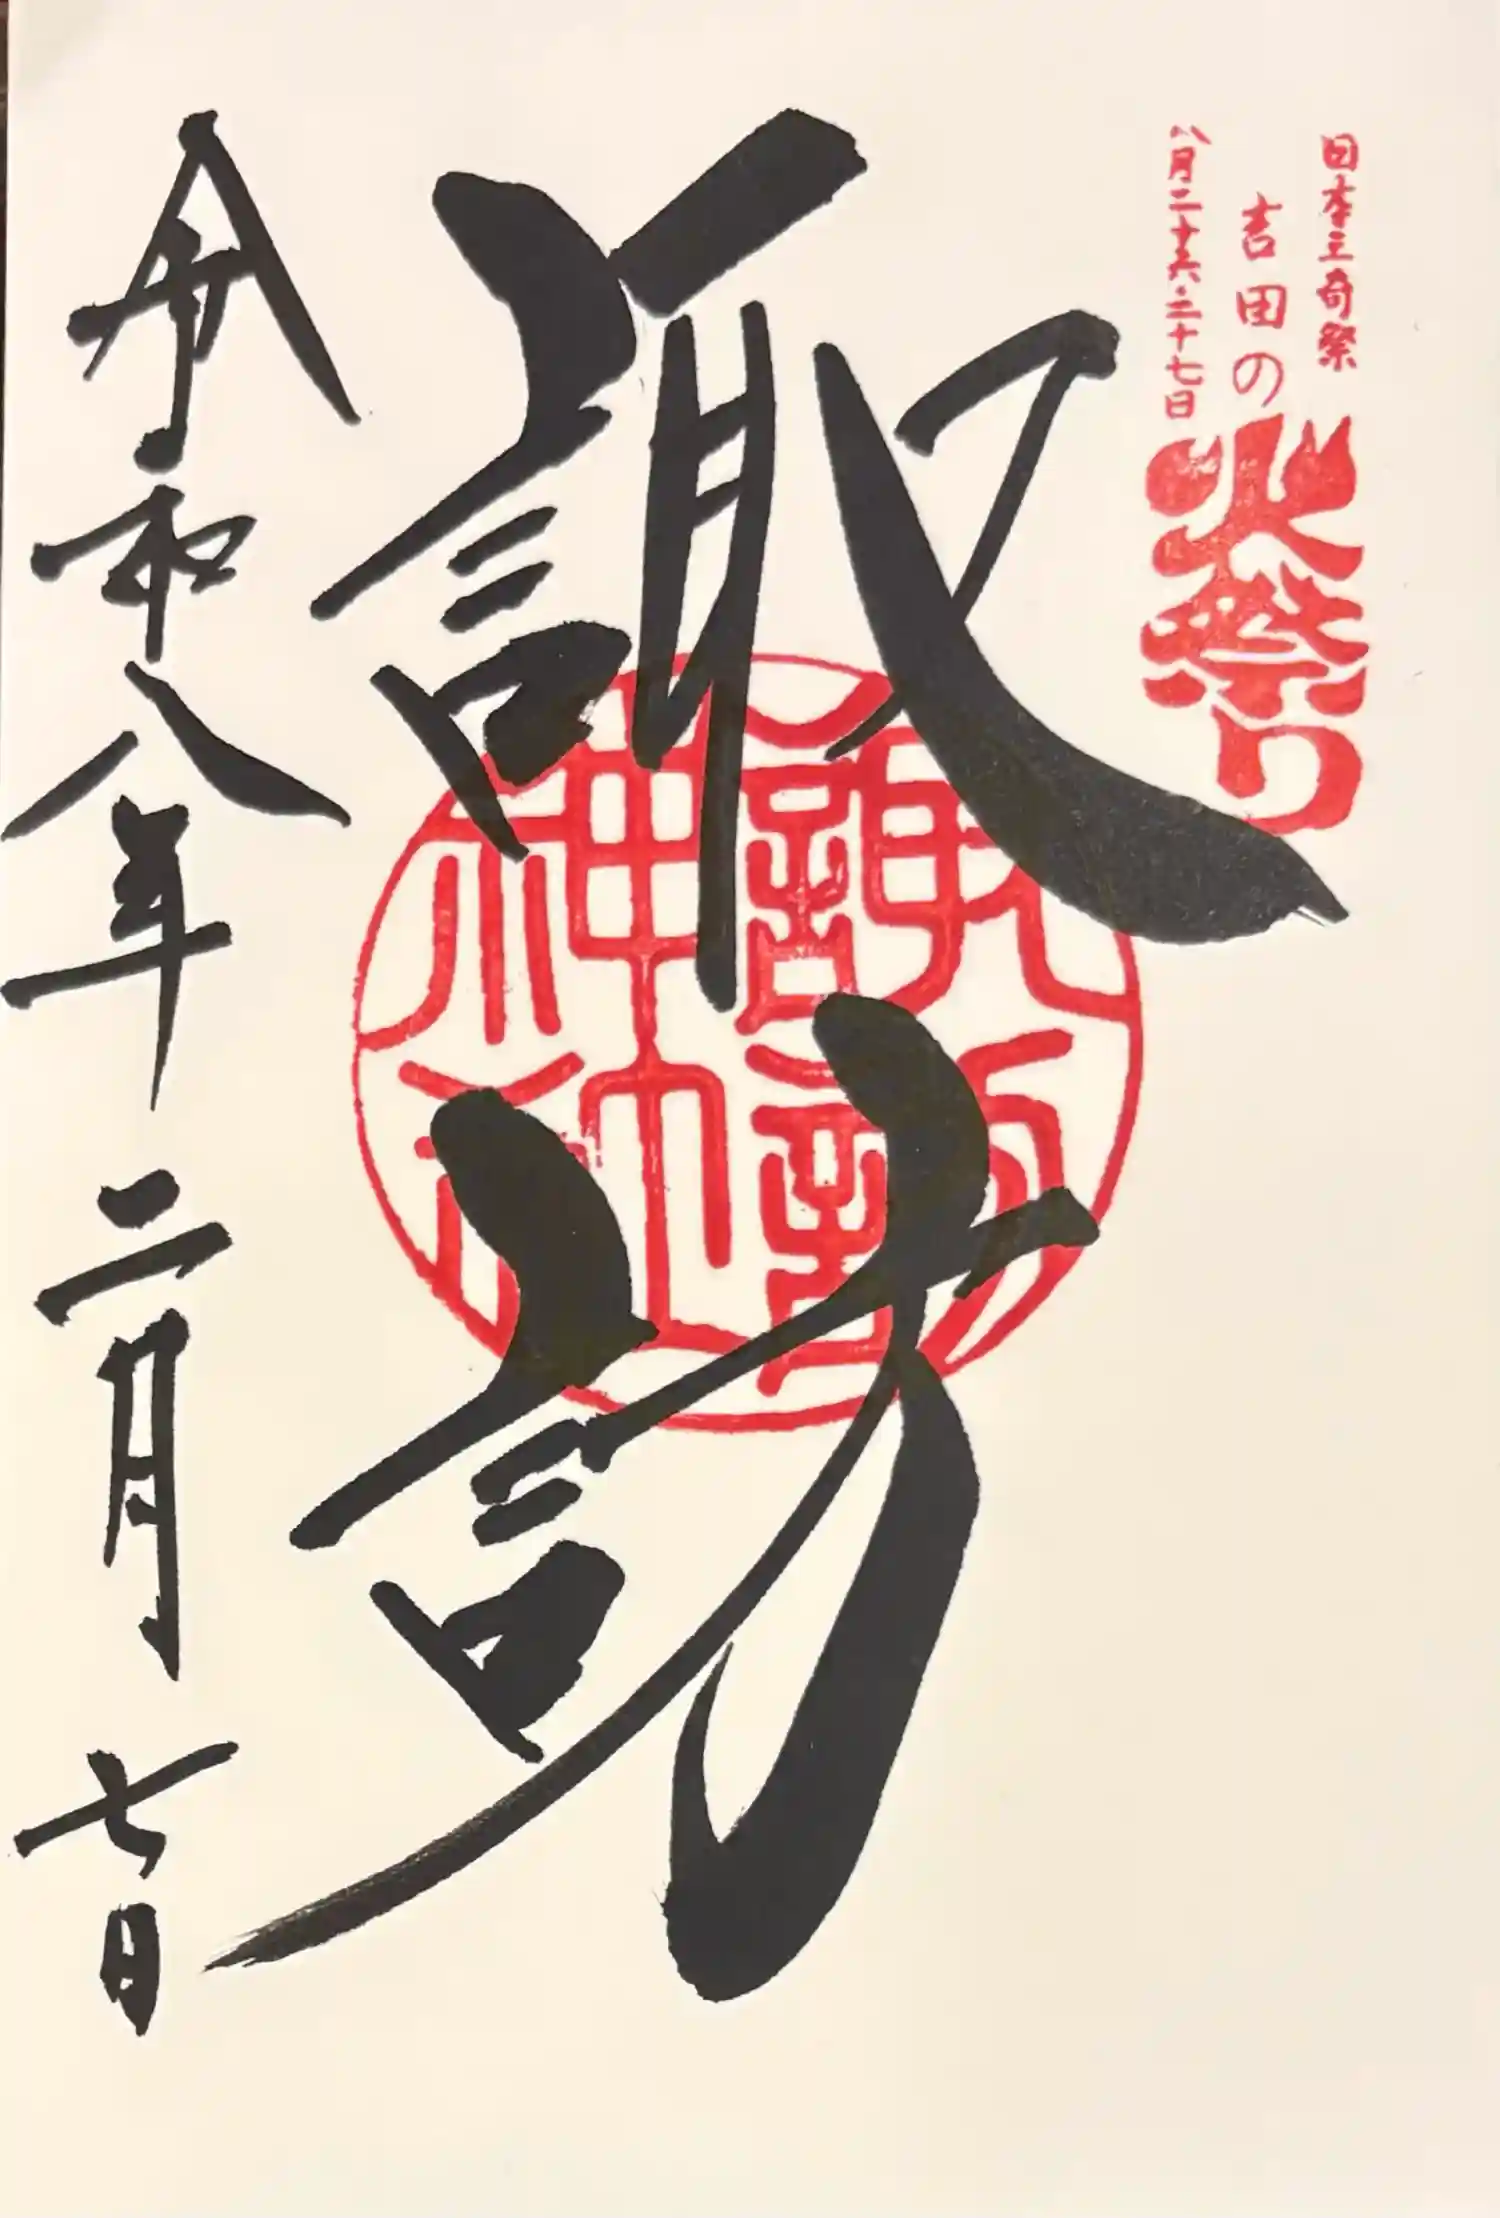 日本三奇祭
吉田の
火祭り
八月二十六・二十七日
諏訪
諏訪神社
令和八年二月七日